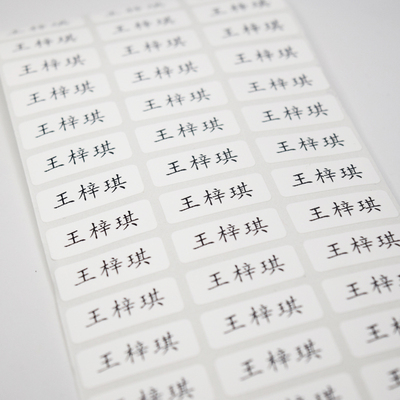 王梓琪 王梓琪
王梓琪 王梓琪 王梓琪
王梓琪 王梓琪 王梓琪
王梓琪 王梓琪 王梓琪
王梓琪 王梓琪 王梓琪
王梓琪 王梓琪 王梓琪
王梓琪 王梓琪 王梓琪
王梓琪 王梓琪 王梓琪
王梓琪 王梓琪 王梓琪
王梓琪 王梓琪 王梓琪
王梓琪 王梓琪 王梓
王梓琪 王梓琪